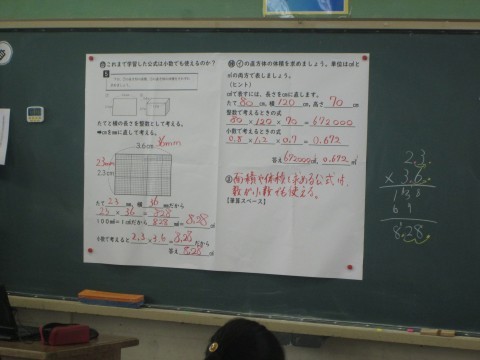 これまで学習した公式は小数でも使えるのか?
たてと横の長さを整数として考える。
➡cmをmmに直して考える。
3.6cm 36mm
23mm
2.3cm
たて 23 mm、横 36 mmだから
23 × 36 = 828
100㎟=1㎠だから 828 ㎟= 8.28 ㎠
小数で考えると 2.3 × 3.6 = 8.28 だから
答え 8.28 ㎠
の直方体の体積を求めましょう。単位は㎤と
㎥の両方で表しましょう。
(ヒント)
㎤で表すには、長さを㎝に直します。
たて 80 cm、横 120 cm、高さ 70 cm
整数で考えるときの式
80 × 120 × 70 = 672000
小数で考えるときの式
0.8 × 1.2 × 0.7 = 0.672
答え 672000 ㎤、0.672 ㎥
面積や体積を求める公式は、
数が小数でも使える。
【筆算スペース】
2.3
× 3.6
8.28